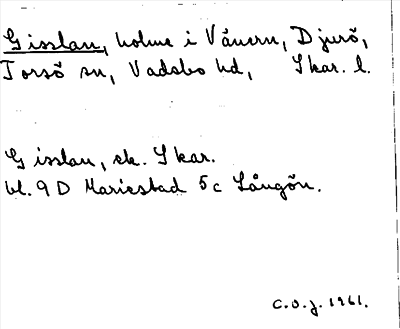 Gisslan, holme i Vänern, Djurö,
Torsö sn, Vadsbo hd, Skar. l.
Gisslan, ek. Skar.
bl. 9 D Mariestad 5 c Långön.
C.O.J. 1961.